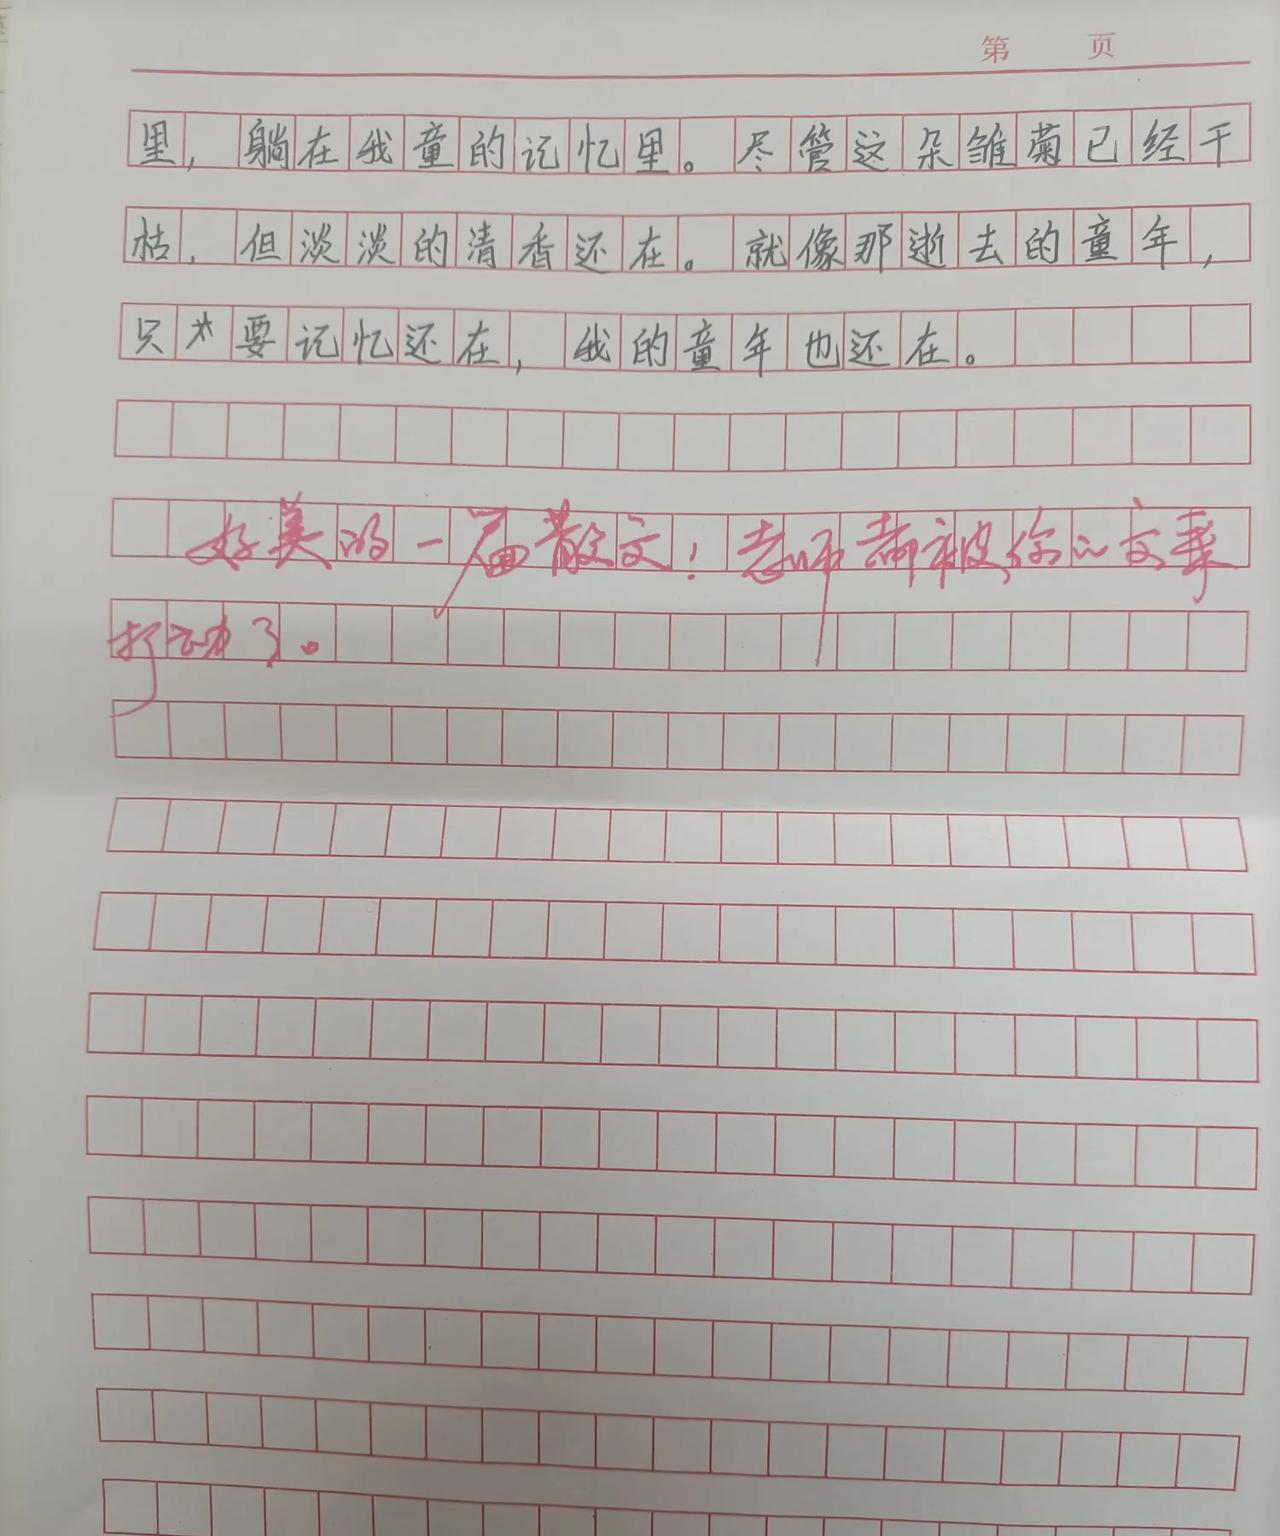 第 页
里，躺在我童的记忆里。尽管这朵雏菊已经干
枯，但淡淡的清香还在。就像那逝去的童年，
只要记忆还在，我的童年也还在。
好美的一篇散文！老师都被你的文章
打动了。